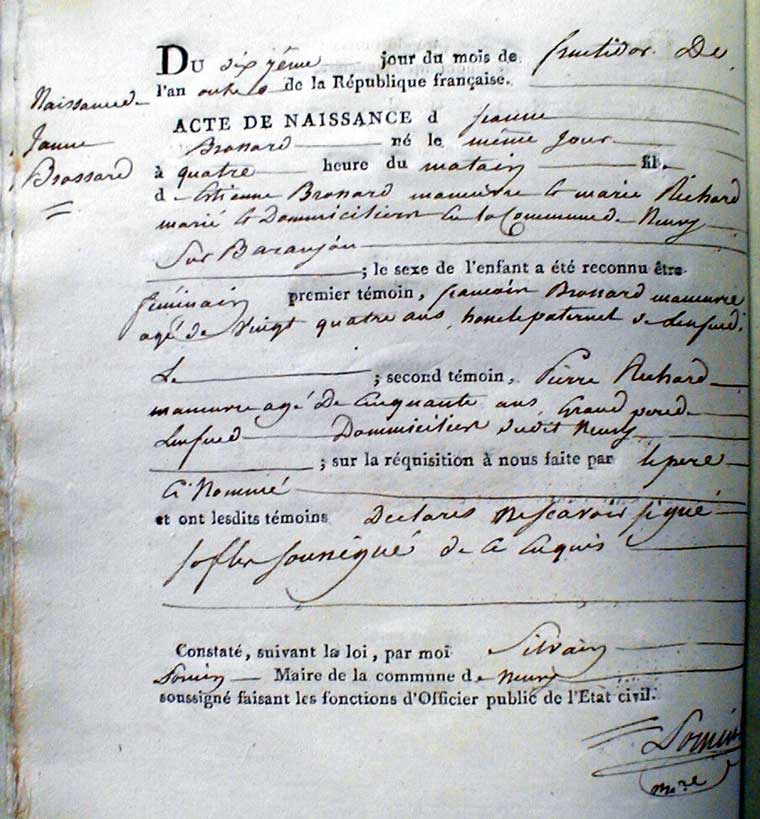 Du sixyême jour du mois de fructidor De
l'an onke de la République française.
Naissance de
Janne
Brossard
ACTE DE NAISSANCE d jeanne
Brossard né le même jour
à quatre heure du matain fil
d Estienne Brossard manœuvre & marie Richard
marié & Dommicilier en la Commune de Neuvy
Sur Baranjon
; le sexe de l'enfant a été reconnu être
féminain premier témoin, francoir Brossard manœuvre
agé de Vingt quatre ans, honcle paternel de
Le ; second témoin, Pierre Richard
manœuvre agé De Cinquante ans, Grand pere de
Lenfued Dommicilier sudit Neuvy
; sur la réquisition à nous faite par le pere
Ci Nommé
et ont lesdits témoins Declarés Ne scavoir signé
de Ce Enquis
Constaté, suivant la loi, par moi Silvain
Maire de la commune de Neuvy
soussigné faisant les fonctions d'Officier public de l'Etat civil.
mre